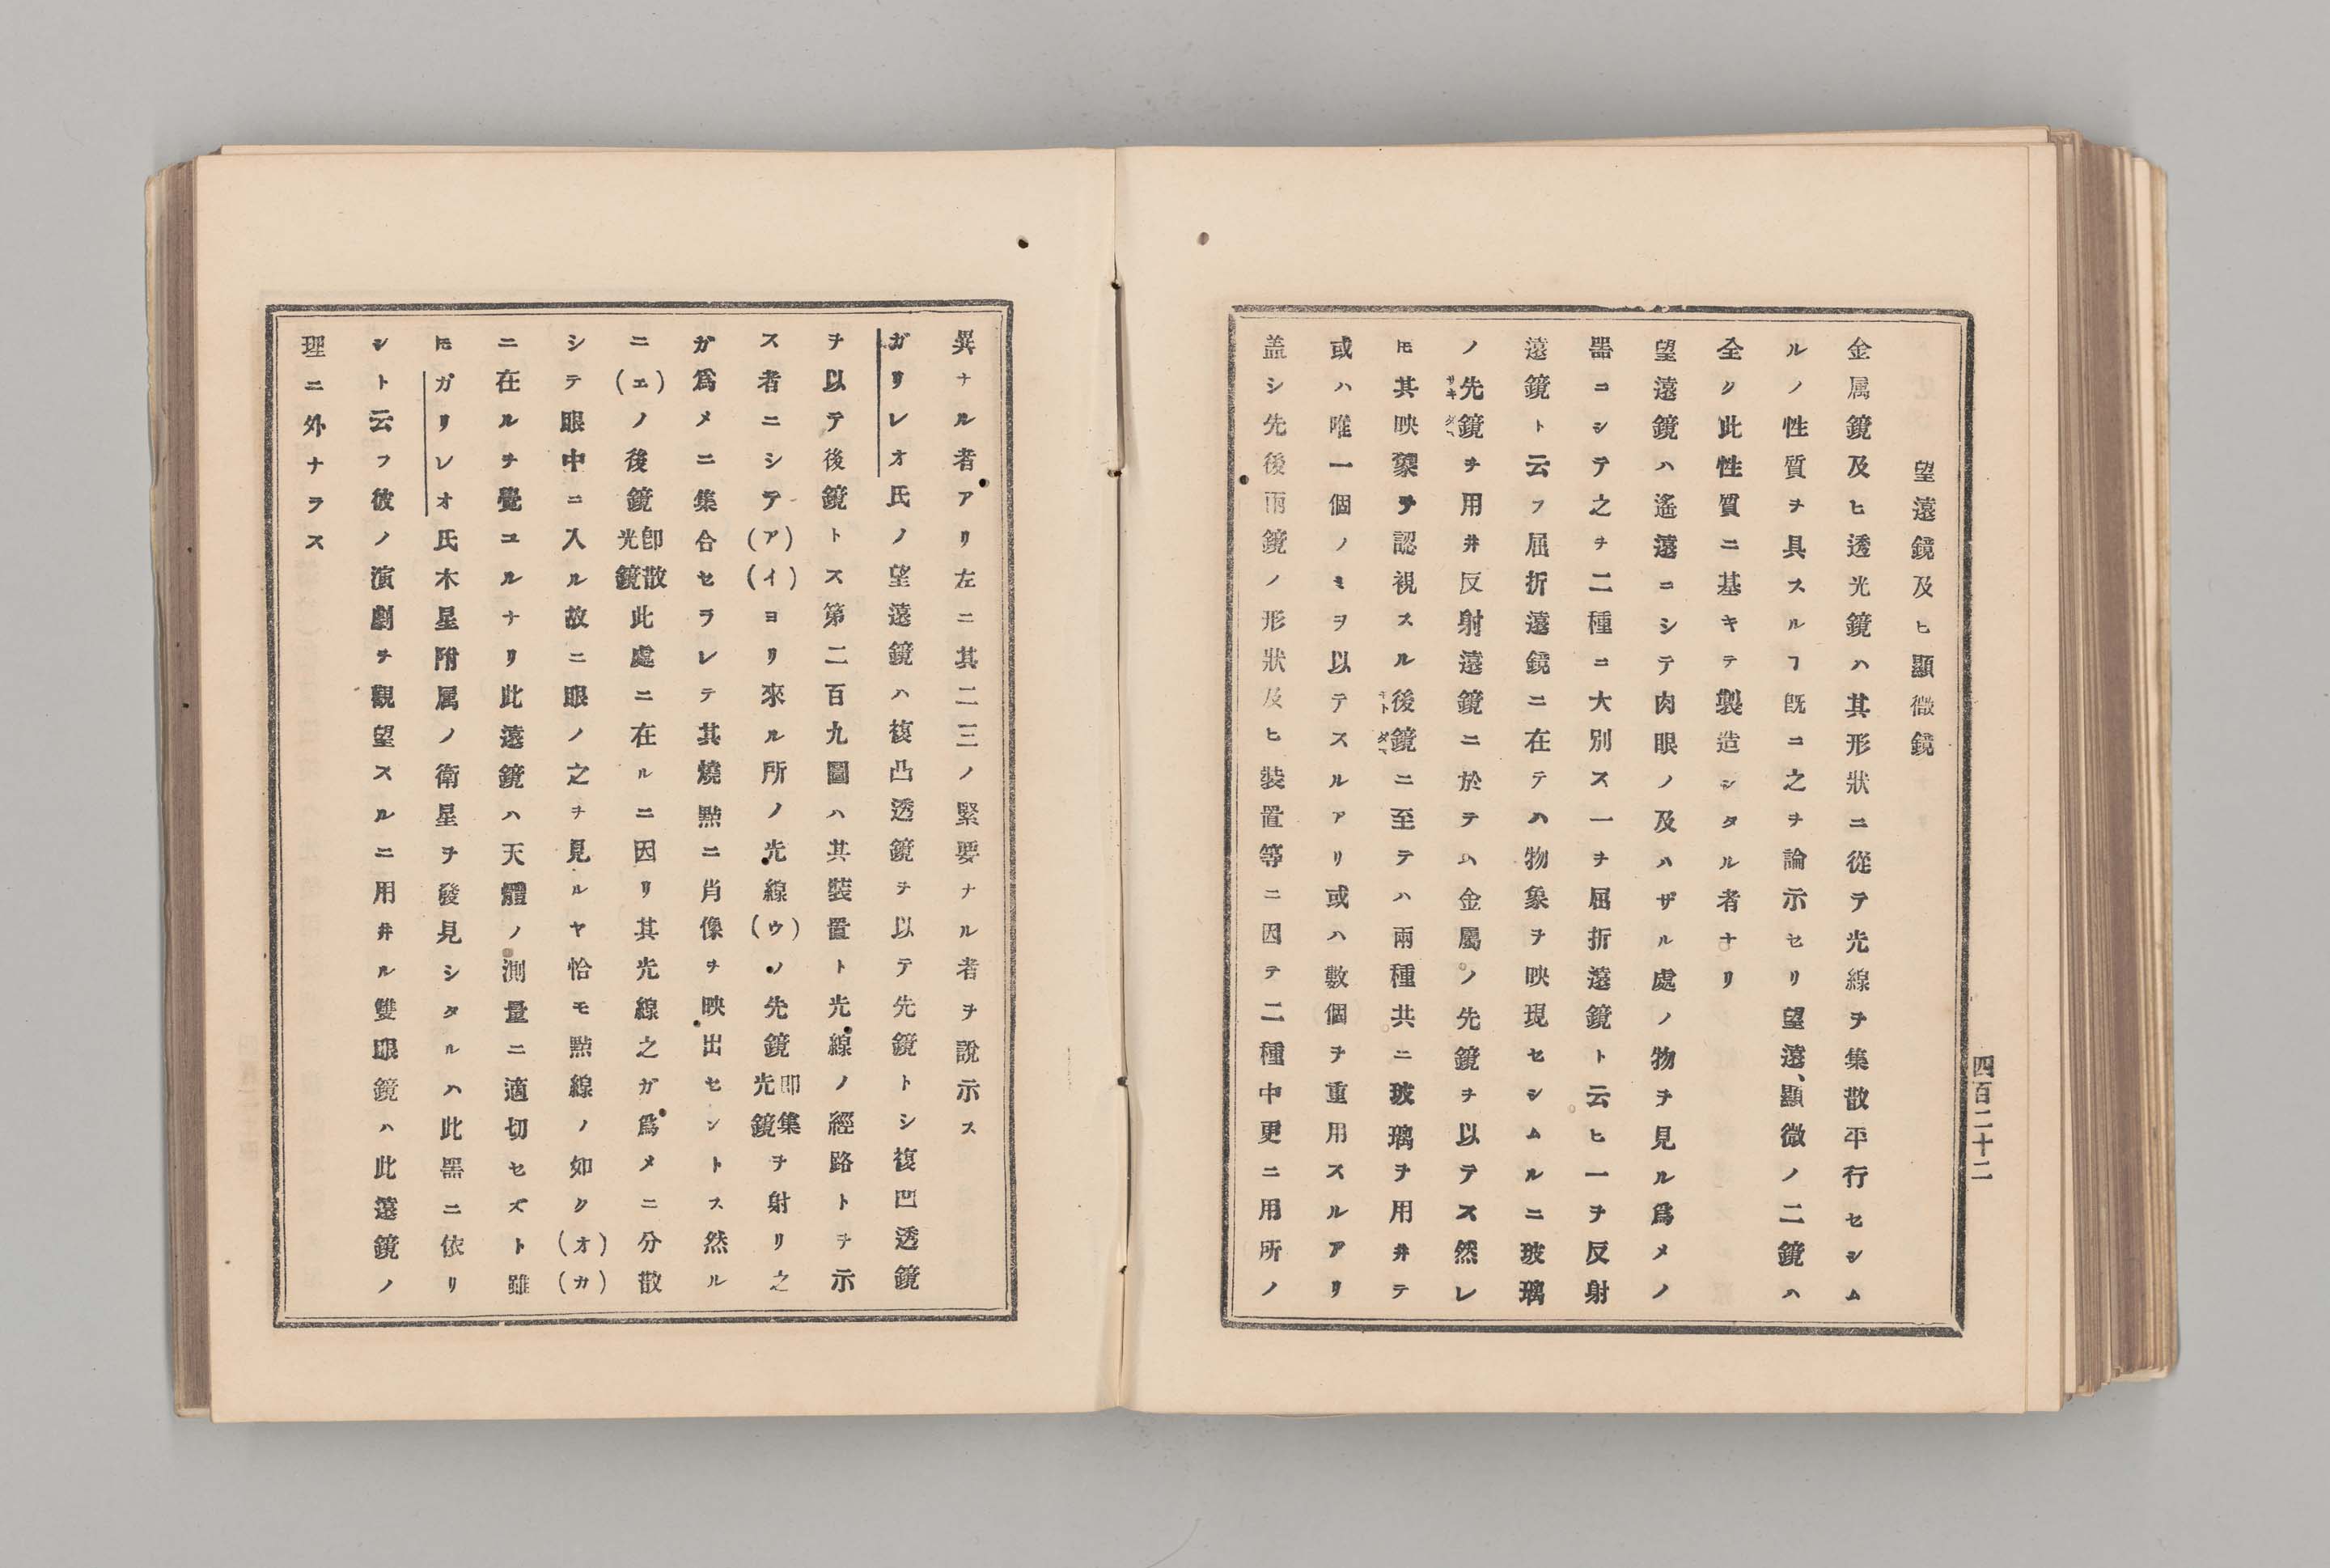 四百二十二
望遠鏡及ヒ顯微鏡
金属鏡及ヒ透光鏡ハ其形狀ニ從テ光線ヲ集散平行セシム
ルノ性質ヲ具スルヿ既ニ之ヲ論示セリ望遠、顯微ノ二鏡ハ
全ク此性質ニ基キテ製造シタル者ナリ
望遠鏡ハ遙遠ニシテ肉眼ノ及ハザル處ノ物ヲ見ル爲メノ
器ニシテ之ヲ二種ニ大別ス一ヲ屈折遠鏡ト云ヒ一ヲ反射
遠鏡ト云フ屈折遠鏡ニ在テハ物象ヲ映現セシムルニ玻璃
ノ先鏡ヲ用井反射遠鏡ニ於テハ金屬ノ先鏡ヲ以テス然レ
𪜈其映像ヲ認視スル後鏡ニ至テハ兩種共ニ玻璃ヲ用井テ
或ハ唯一個ノミヲ以テスルアリ或ハ數個ヲ重用スルアリ
盖シ先後兩鏡ノ形狀及ヒ裝置等ニ因テ二種中更ニ用所ノ
異ナル者アリ左ニ其二三ノ緊要ナル者ヲ說示ス
ガリレオ氏ノ望遠鏡ハ複凸透鏡ヲ以テ先鏡トシ複凹透鏡
ヲ以テ後鏡トス第二百九圖ハ其裝置ト光線ノ經路トヲ示
ス者ニシテ(ア)(イ)ヨリ來ル所ノ光線(ウ)ノ先鏡卽集光鏡ヲ射リ之
ガ爲メニ集合セラレテ其燒點ニ肖像ヲ映出セントス然ル
ニ(エ)ノ後鏡卽散光鏡此處ニ在ルニ因リ其光線之ガ爲メニ分散
シテ眼中ニ入ル故ニ眼ノ之ヲ見ルヤ恰モ點線ノ如ク(オ)(カ)
ニ在ルヲ覺ユルナリ此遠鏡ハ天體ノ測量ニ適切セズト雖
𪜈ガリレオ氏木星附属ノ衛星ヲ發見シタルハ此器ニ依リ
シト云フ彼ノ演劇ヲ觀望スルニ用井ル雙眼鏡ハ此遠鏡ノ
理ニ外ナラス